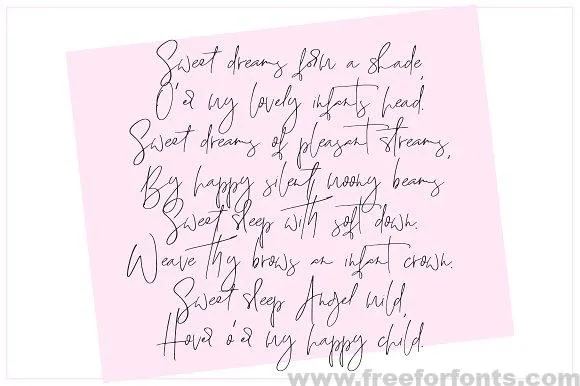 Sweet dreams form a shade,
O'er my lovely infants head.
Sweet dreams of pleasant streams,
By happy silent moony beams
Sweet sleep with soft down.
Weave thy brows an infant crown.
Sweet sleep Angel mild,
Hover o'er my happy child.
www.freeforfonts.com